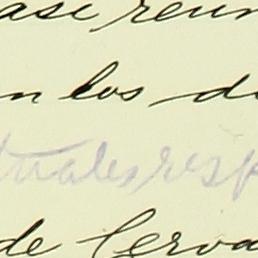 ase reun
n los d
tuales resp
de Cerva